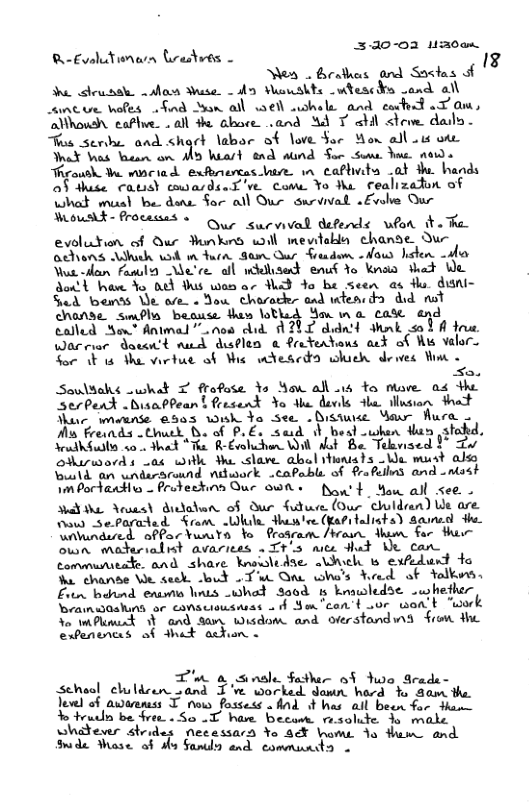 3-20-02 11:30am
18
R-Evolutionary Greetings -
Hey - Brothas and Systas of
the struggle - May these - My thoughts - integrity - and all
sincere hopes - find you all well - whole and content. I am,
although captive - all the above - and yet I still strive daily.
This scribe and short labor of love for you all - is one
that has been on My heart and mind for some time now.
Through the myriad experiences - here in captivity - at the hands
of these racist cowards. I've come to the realization of
what must be done for all Our survival. Evolve Our
thought-Processes.
Our survival depends upon it. The
evolution of Our thinking will inevitably change Our
actions. Which will in turn gain Our freedom. Now listen - My
Hue-Man Family - We're all intelligent enuf to know that We
don't have to act this way or that to be seen as the digni-
fied beings We are. You character and integrity did not
change simply because they locked you in a cage and
called you "Animal" - now did it?! I didn't think so! A true
Warrior doesn't need display a Pretentious act of His valor -
for it is the virtue of His integrity which drives Him.
So,
Souljahs - what I Propose to you all - is to move as the
serpent. Disappear! Present to the devils the illusion that
their immense egos wish to see. Disguise Your Aura.
My Freinds - Chuck D. of P.E. said it best - when they stated,
truthfully so - that "The R-Evolution Will Not Be Televised!" IN
otherwords - as with the slave abolitionists - We must also
build an underground network - capable of Propelling and - Most
importantly - Protecting Our own. Don't you all see -
that the truest dictation of Our future (Our children) We are
now separated from. While they're (Kapitalists) gained the
unhundered opportunity to Program/train them for their
own materialist avarices. It's nice that We can
communicate and share knowledge. Which is expedient to
the change We seek - but - I'm One who's tired of talking.
Even behind enemy lines - what good is knowledge - whether
brainwashing or consciousness - if you "can't - or won't" work
to implement it and gain wisdom and overstanding from the
experiences of that action.
I'm a single father of two grade-
school children - and I've worked damn hard to gain the
level of awareness I now possess. And it has all been for them
to truely be free. So - I have become resolute to make
whatever strides necessary to get home to them and
guide those of My family and community.